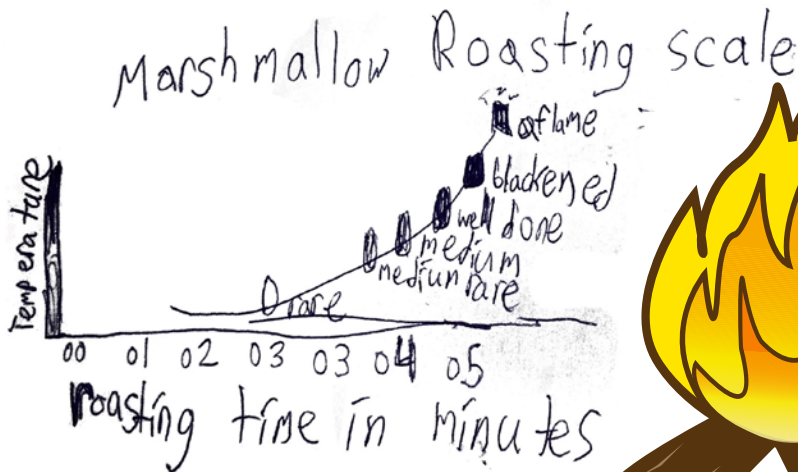 Marshmallow Roasting scale
aflame
blackened
well done
medium
medium rare
rare
Temperature
00 01 02 03 03 04 05
roasting time in minutes